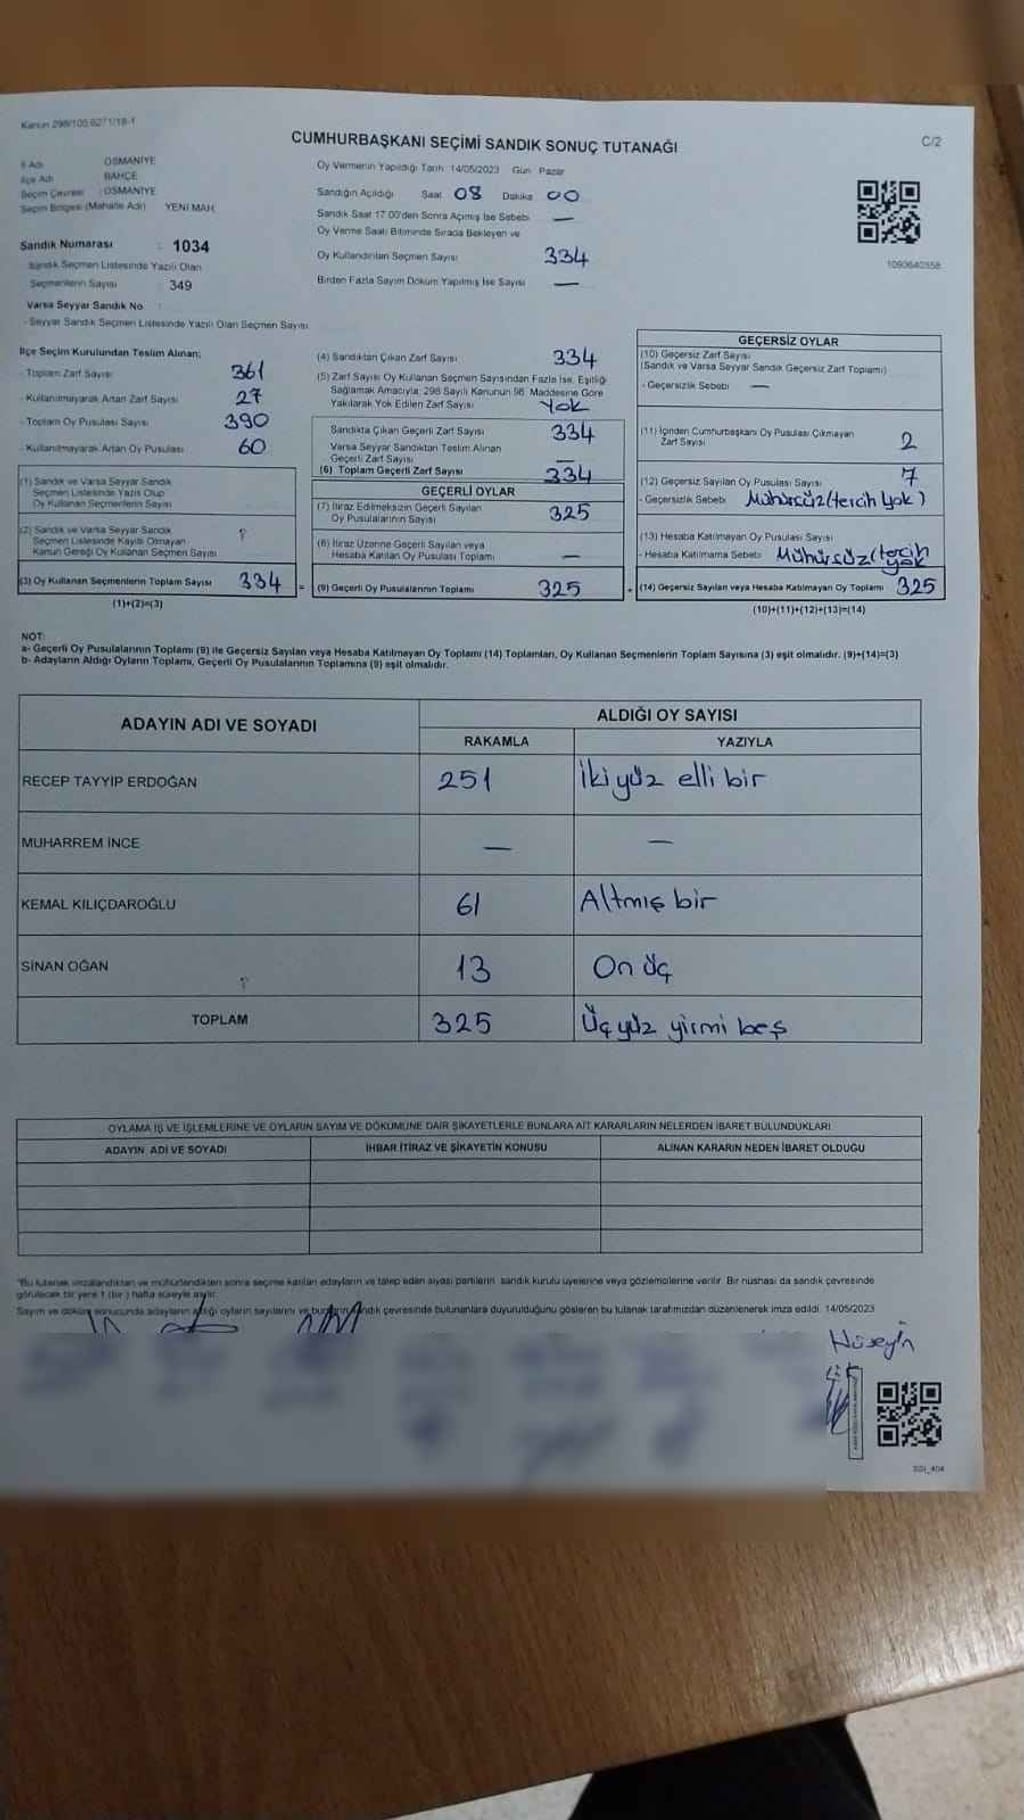 Kanun 298/105.6271/18-1
CUMHURBAŞKANI SEÇİMİ SANDIK SONUÇ TUTANAĞI
C/2
İl Adı OSMANİYE
İlçe Adı BAHÇE
Seçim Çevresi : OSMANİYE
Seçim Bölgesi (Mahalle Adı) YENİ MAH.
Sandık Numarası : 1034
Sandık Seçmen Listesinde Yazılı Olan
Seçmenlerin Sayısı : 349
Varsa Seyyar Sandık No :
- Seyyar Sandık Seçmen Listesinde Yazılı Olan Seçmen Sayısı
Oy Vermenin Yapıldığı Tarih 14/05/2023 Gün Pazar
Sandığın Açıldığı Saat 08 Dakika 00
Sandık Saat 17.00'den Sonra Açılmış İse Sebebi —
Oy Verme Saati Bitiminde Sırada Bekleyen ve
Oy Kullandırılan Seçmen Sayısı 334
Birden Fazla Sayım Döküm Yapılmış İse Sayısı —
1090640558
İlçe Seçim Kurulundan Teslim Alınan;
- Toplam Zarf Sayısı 361
- Kullanılmayarak Artan Zarf Sayısı 27
- Toplam Oy Pusulası Sayısı 390
- Kullanılmayarak Artan Oy Pusulası 60
(1) Sandık ve Varsa Seyyar Sandık
Seçmen Listesinde Yazılı Olup
Oy Kullanan Seçmenlerin Sayısı
(2) Sandık ve Varsa Seyyar Sandık
Seçmen Listesinde Kayıtlı Olmayan
Kanun Gereği Oy Kullanan Seçmen Sayısı
(3) Oy Kullanan Seçmenlerin Toplam Sayısı 334 =
(1)+(2)=(3)
(4) Sandıktan Çıkan Zarf Sayısı 334
(5) Zarf Sayısı Oy Kullanan Seçmen Sayısından Fazla İse, Eşitliği
Sağlamak Amacıyla; 298 Sayılı Kanunun 98. Maddesine Göre
Yakılarak Yok Edilen Zarf Sayısı Yok
Sandıkta Çıkan Geçerli Zarf Sayısı 334
Varsa Seyyar Sandıktan Teslim Alınan
Geçerli Zarf Sayısı —
(6) Toplam Geçerli Zarf Sayısı 334
GEÇERLİ OYLAR
(7) İtiraz Edilmeksizin Geçerli Sayılan
Oy Pusulalarının Sayısı 325
(8) İtiraz Üzerine Geçerli Sayılan veya
Hesaba Katılan Oy Pusulası Toplamı —
(9) Geçerli Oy Pusulalarının Toplamı 325 +
GEÇERSİZ OYLAR
(10) Geçersiz Zarf Sayısı
(Sandık ve Varsa Seyyar Sandık Geçersiz Zarf Toplamı)
- Geçersizlik Sebebi —
(11) İçinden Cumhurbaşkanı Oy Pusulası Çıkmayan
Zarf Sayısı 2
(12) Geçersiz Sayılan Oy Pusulası Sayısı 7
- Geçersizlik Sebebi Mühürsüz(tercih yok)
(13) Hesaba Katılmayan Oy Pusulası Sayısı
- Hesaba Katılmama Sebebi Mühürsüz(tercih
yok
(14) Geçersiz Sayılan veya Hesaba Katılmayan Oy Toplamı 325
(10)+(11)+(12)+(13)=(14)
NOT:
a- Geçerli Oy Pusulalarının Toplamı (9) ile Geçersiz Sayılan veya Hesaba Katılmayan Oy Toplamı (14) Toplamları, Oy Kullanan Seçmenlerin Toplam Sayısına (3) eşit olmalıdır. (9)+(14)=(3)
b- Adayların Aldığı Oyların Toplamı, Geçerli Oy Pusulalarının Toplamına (9) eşit olmalıdır.
ADAYIN ADI VE SOYADI
ALDIĞI OY SAYISI
RAKAMLA YAZIYLA
RECEP TAYYİP ERDOĞAN 251 İki yüz elli bir
MUHARREM İNCE — —
KEMAL KILIÇDAROĞLU 61 Altmış bir
SİNAN OĞAN 13 On üç
TOPLAM 325 Üç yüz yirmi beş
OYLAMA İŞ VE İŞLEMLERİNE VE OYLARIN SAYIM VE DÖKÜMÜNE DAİR ŞİKAYETLERLE BUNLARA AİT KARARLARIN NELERDEN İBARET BULUNDUKLARI
ADAYIN ADI VE SOYADI İHBAR İTİRAZ VE ŞİKAYETİN KONUSU ALINAN KARARIN NEDEN İBARET OLDUĞU
*Bu tutanak imzalandıktan ve mühürlendikten sonra seçime katılan adayların ve talep eden siyasi partilerin sandık kurulu üyelerine veya gözlemcilerine verilir. Bir nüshası da sandık çevresinde
görülecek bir yere 1 (bir) hafta süreyle asılır.
Sayım ve döküm sonucunda adayların aldığı oyların sayılarını ve bunların sandık çevresinde bulunanlara duyurulduğunu gösteren bu tutanak tarafımızdan düzenlenerek imza edildi. 14/05/2023
Hüseyin